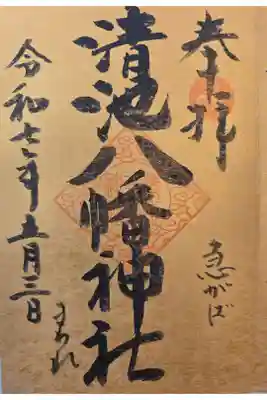 奉拝
急がば
清池八幡神社
令和七年五月三日
まわれ